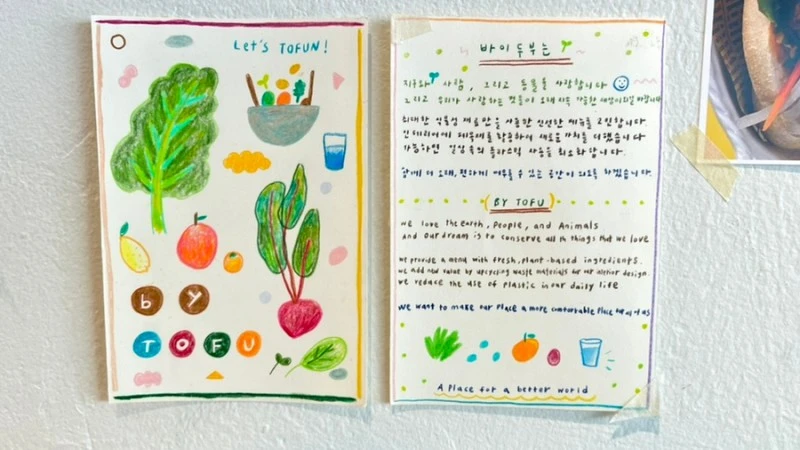 Let's TOFUN!
by
TOFU
바이두부는
지구와 사람, 그리고 동물을 사랑합니다
그리고 우리가 사랑하는 것들이 오래 지속 가능한 세상이 되길 바랍니다
최대한 식물성 재료만을 사용한 신선한 메뉴를 고민합니다.
인테리어에 폐자재를 활용하여 새로운 가치를 더했습니다
가능하면 일상 속의 플라스틱 사용을 최소화합니다.
함께 더 오래, 편하게 머무를 수 있는 공간이 되도록 하겠습니다.
BY TOFU
We love the Earth, People, and Animals
And our dream is to conserve all th things that we love
We provide a menu with fresh, plant-based ingredients.
We add new value by upcycling waste materials for our interior design.
We reduce the use of plastic in our daisy life
We want to make our place a more comfortable place
A Place for a better world